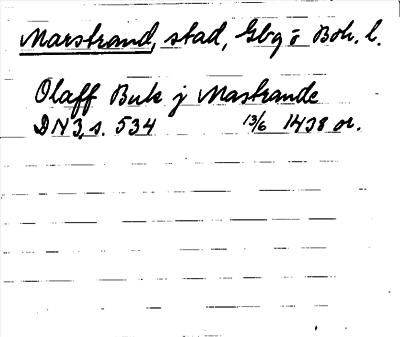 Marstrand, stad, Gbg o Boh. l.
Olaff Buk j Mastrande
DN 3, s. 534 13/6 1438 or.